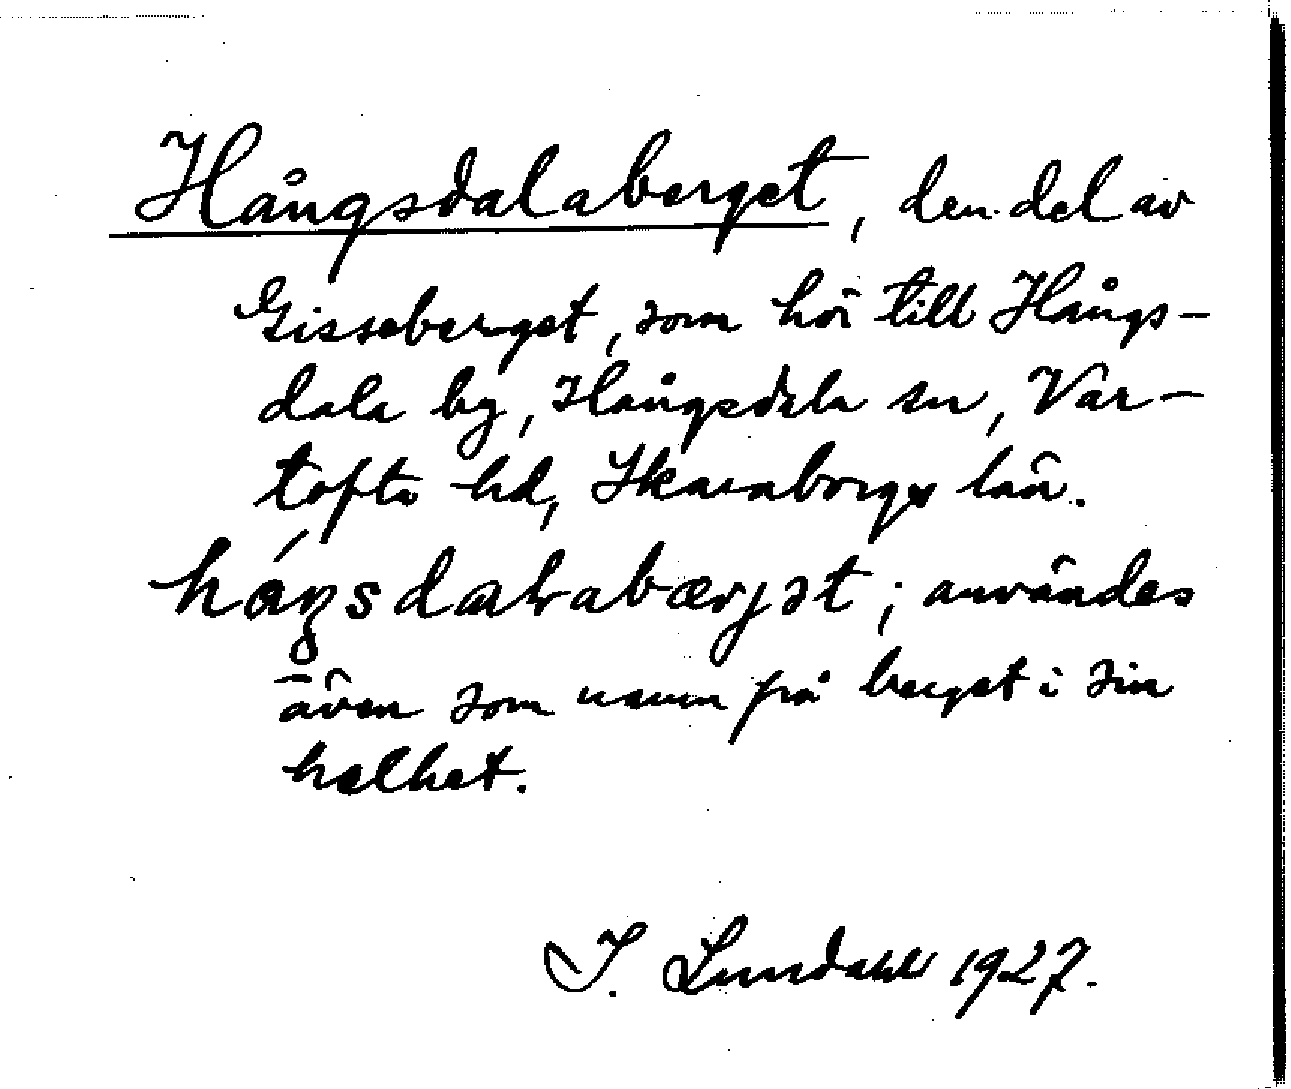 Hångsdalaberget, den del av
Gisseberget, som hör till Hångs-
dala by, Hångsdala sn, Var-
tofta hd, Skaraborgs län.
användes
även som namn på berget i sin
helhet.
I. Lundahl 1927.